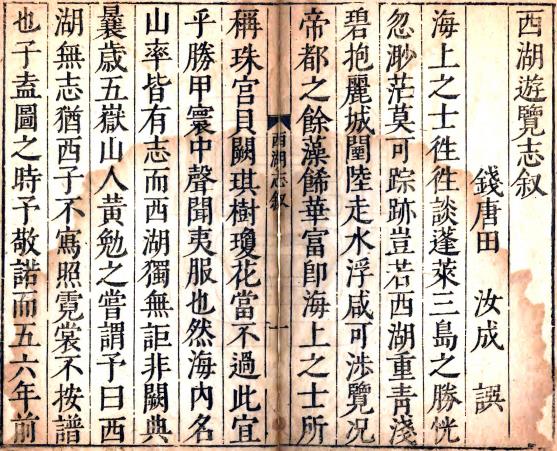 西湖遊覽志叙
錢唐田 汝成 誤
海上之士徃徃談蓬萊三島之勝恍
忽渺茫莫可踪跡豈若西湖重青淺
碧抱麗城闉陸走水浮咸可渉覽况
帝都之餘藻餙華富即海上之士所
西湖志叙
一
稱珠宮貝闕琪樹瓊花當不過此宜
乎勝甲寰中聲聞夷服也然海内名
山率皆有志而西湖獨無詎非闕典
曩歲五嶽山人黄勉之嘗謂予曰西
湖無志猶西子不寫照霓裳不按譜
也子盍圖之時予敬諾而五六年前